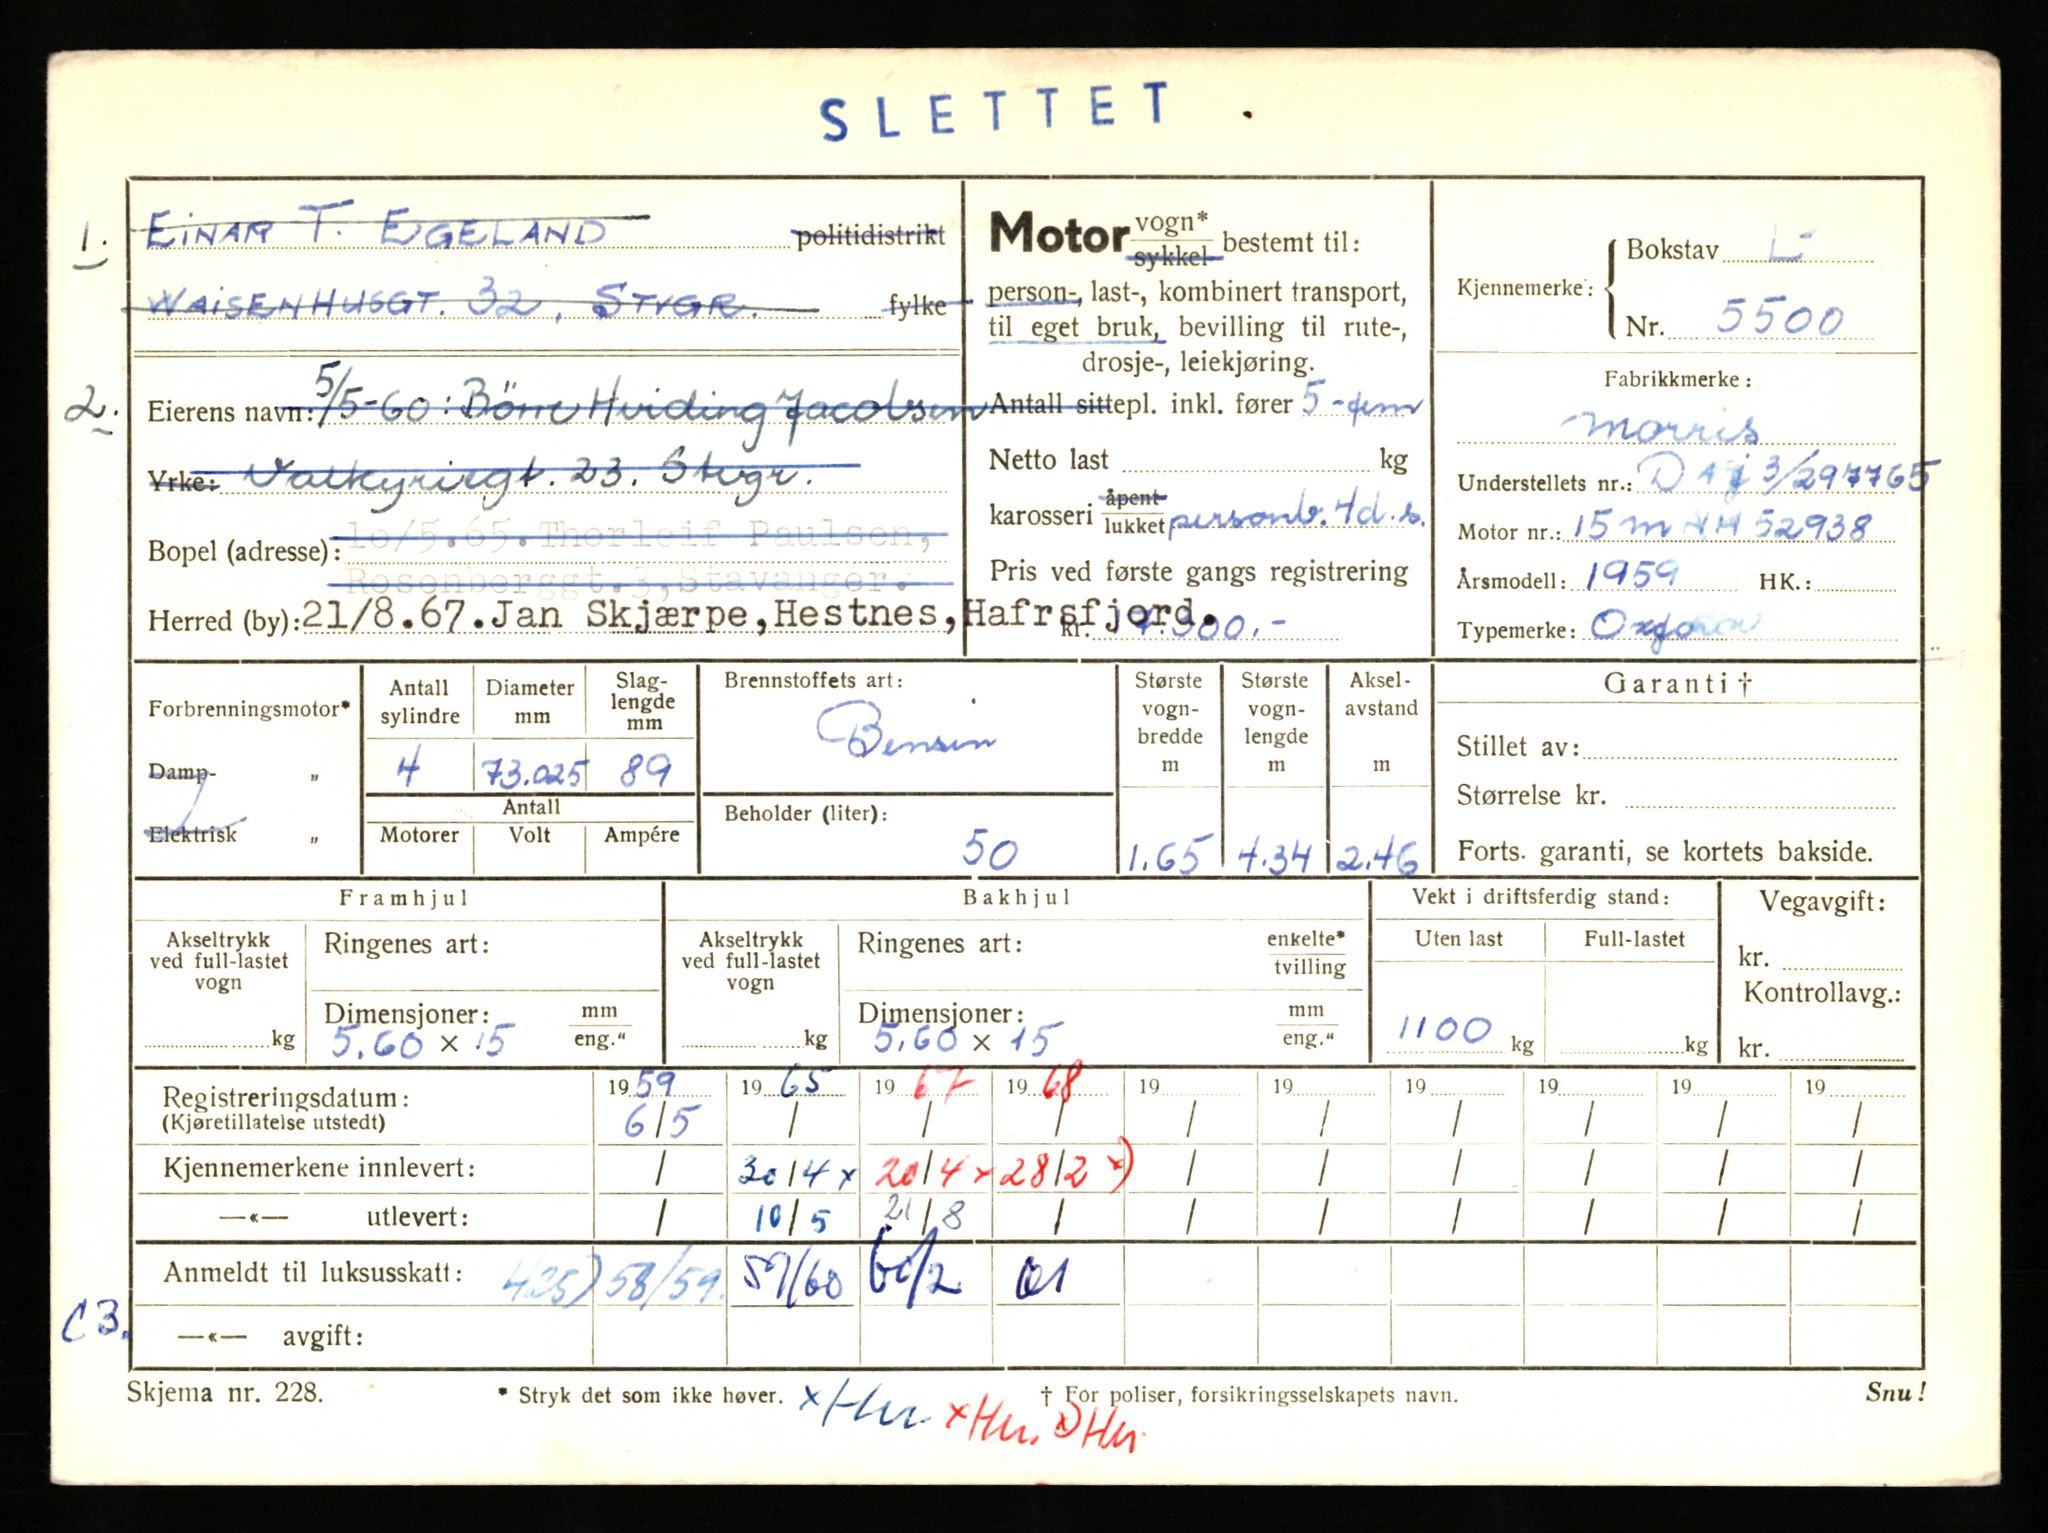 SLETTET
1. EINAR T. EGELAND politidistrikt
WAISENHUSGT. 32, STVGR. fylke
2. Eierens navn: 5/5-60: Börre Hviding Jacobsen
Yrke: Valkyriegt. 23. Stvgr.
Bopel (adresse): 10/5.65. Thorleif Paulsen,
Rosenberggt.3,Stavanger.
Herred (by): 21/8.67.Jan Skjærpe,Hestnes,Hafrsfjord.
Motor vogn* / sykkel bestemt til:
person-, last-, kombinert transport,
til eget bruk, bevilling til rute-,
drosje-, leiekjøring.
Antall sittepl. inkl. fører 5 - fem
Netto last kg
karosseri åpent / lukket personb. 4d. s.
Pris ved første gangs registrering
kr. 300.-
Kjennemerke: Bokstav L-
Nr. 5500
Fabrikkmerke:
Morris
Understellets nr.: 3/297765
Motor nr.: 15 M 52938
Årsmodell: 1959 HK.:
Typemerke: Oxford
Forbrenningsmotor*
Damp- „
Elektrisk „
Antall sylindre Diameter mm Slag-lengde mm
4 73.025 89
Antall
Motorer Volt Ampére
Brennstoffets art:
Bensin
Beholder (liter):
50
Største vogn-bredde m Største vogn-lengde m Aksel-avstand m
1.65 4.34 2.46
Garanti †
Stillet av:
Størrelse kr.
Forts. garanti, se kortets bakside.
Framhjul
Akseltrykk ved full-lastet vogn
kg
Ringenes art:
Dimensjoner: mm / eng."
5.60 x 15
Bakhjul
Akseltrykk ved full-lastet vogn
kg
Ringenes art: enkelte* / tvilling
Dimensjoner: mm / eng."
5.60 x 15
Vekt i driftsferdig stand:
Uten last Full-lastet
1100 kg kg
Vegavgift:
kr.
Kontrollavg.:
kr.
Registreringsdatum: 1959 1965 1967 1968 19 19 19 19 19 19
(Kjøretillatelse utstedt) 6/5 / / / / / / / / /
Kjennemerkene innlevert: / 30/4 x 20/4 x 28/2 x) / / / / / /
—«— utlevert: / 10/5 21/8 / / / / / / /
Anmeldt til luksusskatt: 425) 58/59. 59/60 60/2 61
C3.
—«— avgift:
Skjema nr. 228. * Stryk det som ikke høver. † For poliser, forsikringsselskapets navn. Snu!